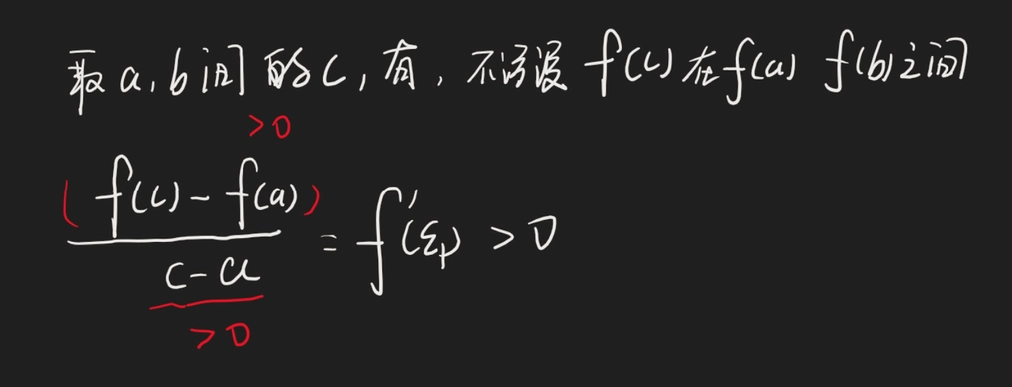 取a,b间的c,有,不妨设 f(c)在f(a) f(b)之间
>0
(f(c)-f(a))/(c-a) = f'(ξ₁) > 0
>0